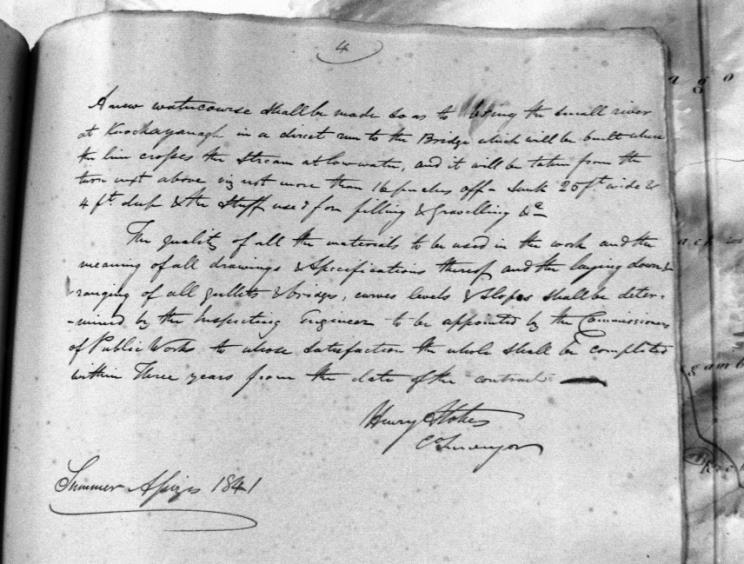 4
A new watercourse shall be made so as to bring the small river
at Knockayanagh in a direct run to the Bridge which will be built where
the line crosses the Stream at low water, and it will be taken from the
turn next above viz not more than 16 perches off - Sunk 20 ft wide &
4 ft deep & the Stuff used for filling & Gravelling &c
The quality of all the materials to be used in the work and the
meaning of all drawings & Specifications thereof and the laying down &
ranging of all gullets & bridges, curves levels & Slopes shall be deter-
-mined by the Inspecting Engineer to be appointed by the Commissioners
of Public Works to whose satisfaction the whole shall be completed
within Three years from the date of the contract
Henry Stokes
Co Surveyor
Summer Assizes 1841